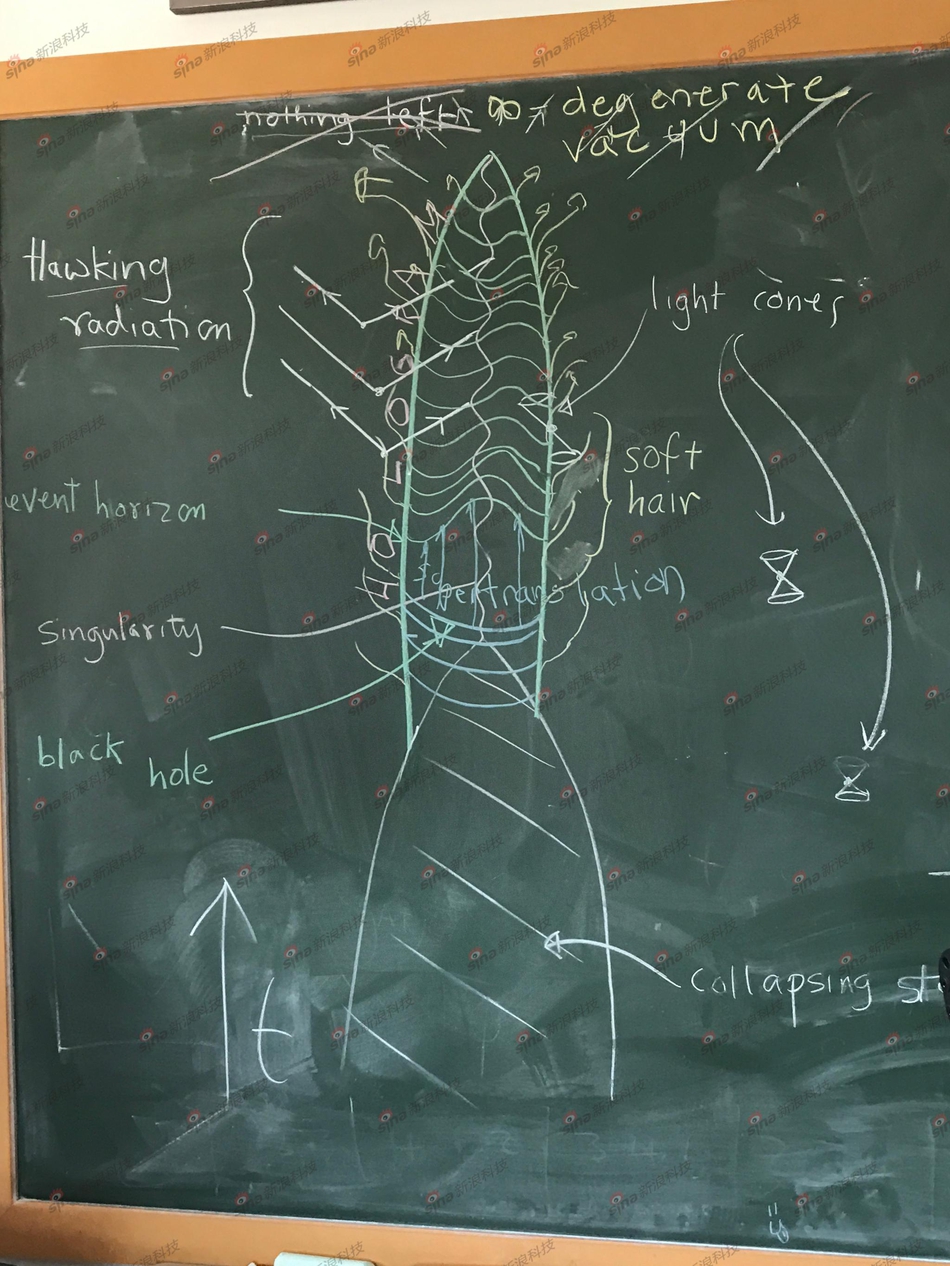 nothing left ∞ - degenerate
vacuum
Hawking
radiation
light cones
soft
hair
event horizon
HOLOGRAM
supertranslation
singularity
black
hole
t
collapsing st
sina新浪科技